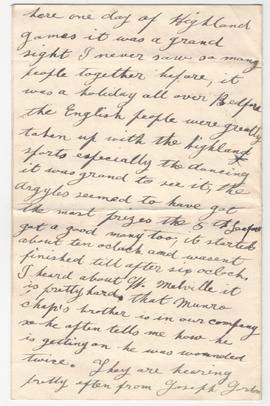 here one day of Highland
games it was a grand
sight I never saw so many
people together before, it
was a holiday all over Bedford
the English people were greatly
taken up with the highland
sports especially the dancing
it was grand to see it, the
Argyles seemed to have got
the most prizes the 5
got a good many too, it started
about ten oclock and wasent
finished till after six oclock,
I heard about Melville it
is pretty hard, that Munro
chap's brother is in our company
so he often tells me how he
is getting on he was wounded
twice. They are hearing
pretty often from Joseph Gordon